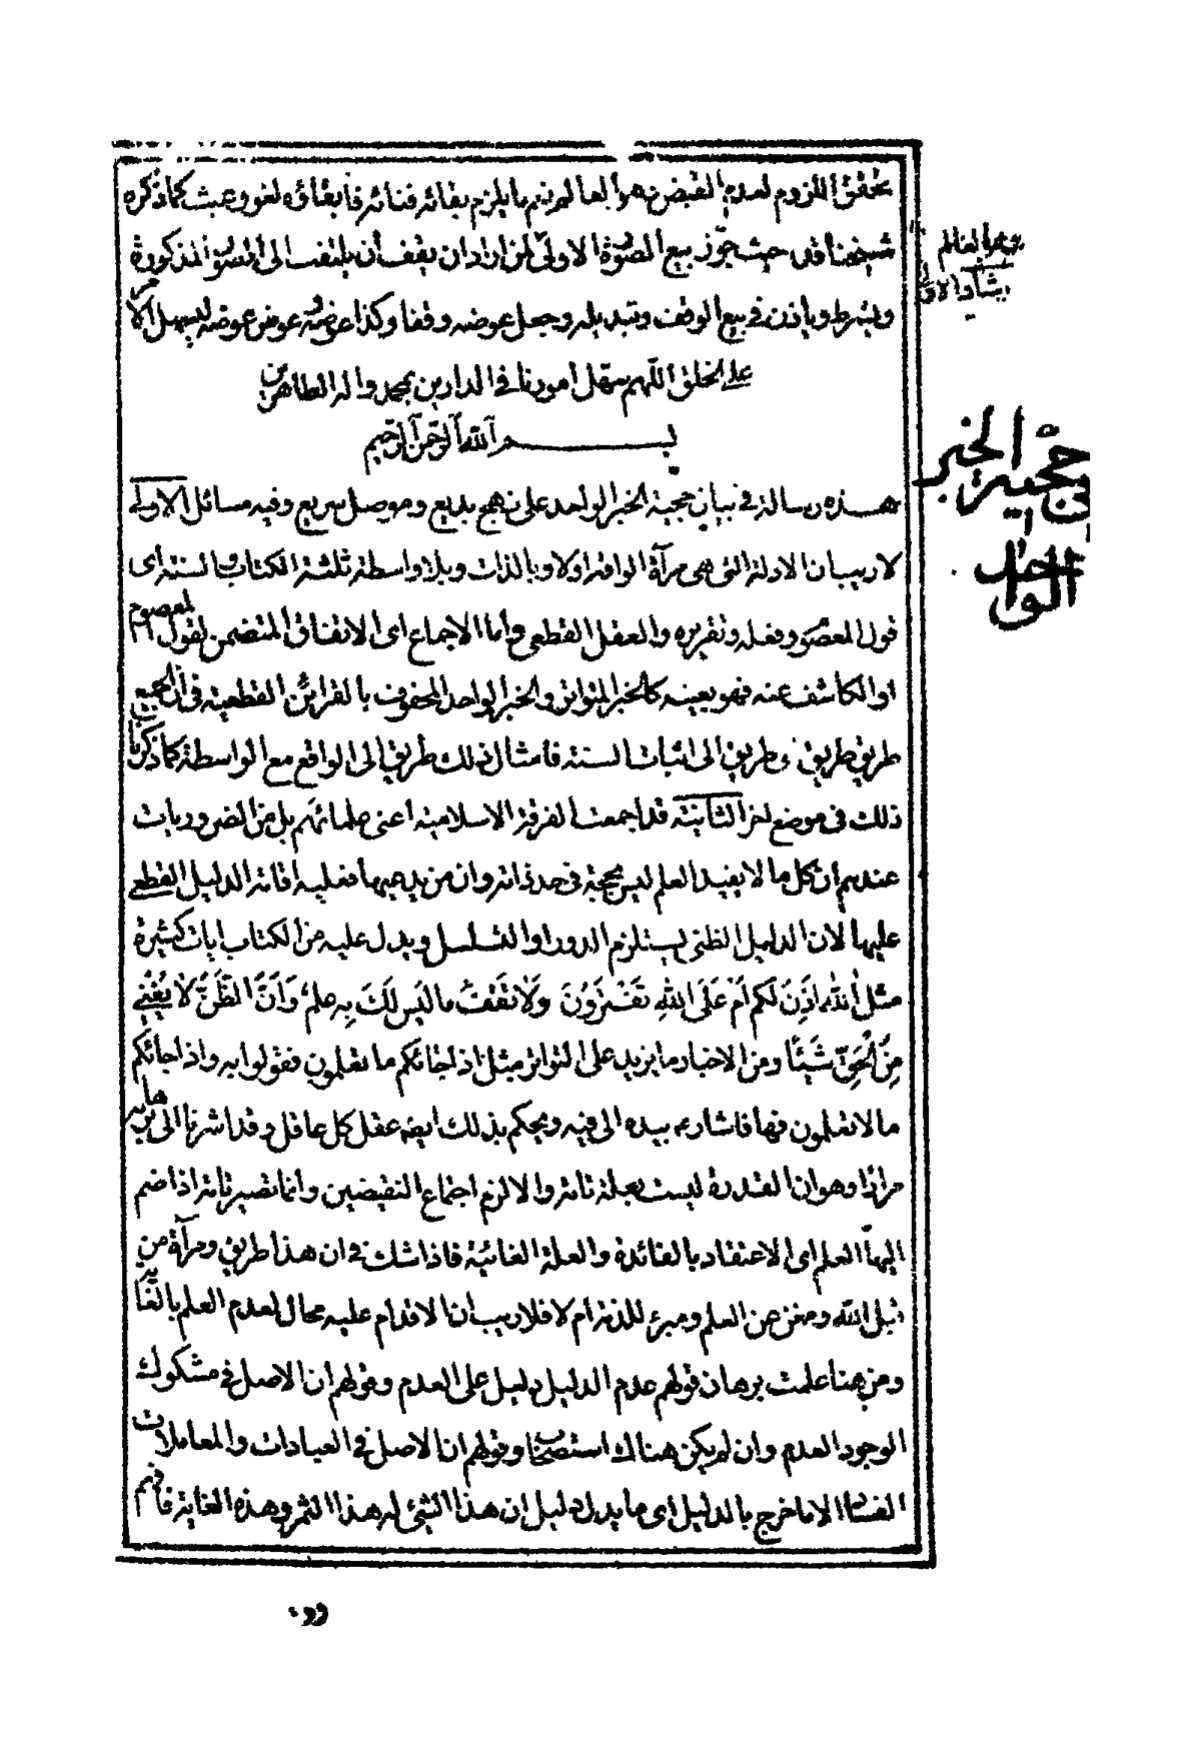 تحقق اللزوم لعدم القبض نعم هو ابقاء لم يلزم بقائه فنائه فابقاؤه لغو وعبث كما ذكره
شيخنا قده حيث جوّز بيع الصورة الاولى لمن اراد ان يقف أن يلتفت الى الصور المذكورة
ويشرط وياذن في بيع الوقف وتبديله وجعل عوضه وقفا وكذا عوضه وعوض عوضه ليسهل الامر
على الخلق اللّهم سهّل امورنا في الدارين بمحمد واله الطاهرين
بسم اللّه الرّحمن الرّحيم
هذه رسالة في بيان حجية الخبر الواحد على نهج بديع وموصل سريع وفيه مسائل الاولى
لا ريب ان الادلة التي هي مرآة الواقع اولا وبالذات وبلا واسطة ثلثة الكتاب والسنة اى
قول المعصوم وفعله وتقريره والعقل القطعى واما الاجماع اى الاتفاق المتضمن لقول المعصوم
او الكاشف عنه فهو بعينه كالخبر المتواتر والخبر الواحد المحفوف بالقرائن القطعية في ان الجميع
طريق طريق وطريق الى اثبات السنة فامثال ذلك طريق الى الواقع مع الواسطة كما ذكرنا
ذلك في موضع اخر الثانية قد اجمعت الفرقة الاسلامية اعنى علمائهم بل من الضروريات
عندهم ان كل ما لا يفيد العلم ليس بحجة في حد ذاته وان من يدعيها فعليه اقامة الدليل القطعى
عليها لان الدليل الظنى يستلزم الدور او التسلسل ويدل عليه من الكتاب ايات كثيرة
مثل أللّه اَذِنَ لَكم اَمْ عَلَى اللّهِ تَفْتَرُونَ وَلا تَقْفُ ما ليَس لَكَ بِهِ عِلم وَاَنَّ الظَّنَّ لا يُغْني
مِنَ الْحَقِّ شَيئًا ومن الاخبار ما يزيد على التواتر مثل اذا جائكم ما تعلمون فقولوا به واذا جائكم
ما لا تعلمون فها فاشار ع بيده الى فيه ويحكم بذلك ايضا عقل كل عاقل وقد اشرنا الى برهانه
مرارا وهو ان القدرة ليست بعلة تامة والا لزم اجتماع النقيضين وانما تصير تامة اذا ضم
اليها العلم اى الاعتقاد بالفائدة والعلة الغائية فاذا شك في ان هذا طريق ومرآة من
قبل اللّه ومغن عن العلم ومبرئ للذمة أم لا فلا ريب ان الاقدام عليه محال لعدم العلم بالغاية
ومن هنا علمت برهان قولهم عدم الدليل دليل على العدم وقولهم ان الاصل في مشكوك
الوجود العدم وان لم يكن هناك استصحابا وقولهم ان الاصل في العبادات والمعاملات
الفساد الا ما خرج بالدليل اى ما يدل دليل ان هذا الشئ له هذا الثمر وهذه الغاية فافهم
في حجية الخبر
الواحد